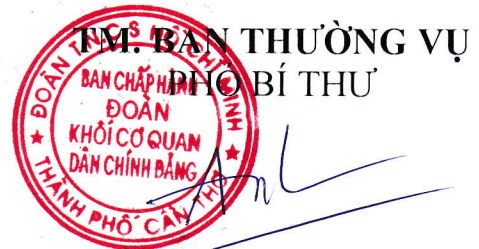 TM. BAN THƯỜNG VỤ
PHÓ BÍ THƯ
ĐOÀN TNCS HỒ CHÍ MINH
BAN CHẤP HÀNH
ĐOÀN
KHỐI CƠ QUAN
DÂN CHÍNH ĐẢNG
THÀNH PHỐ CẦN THƠ